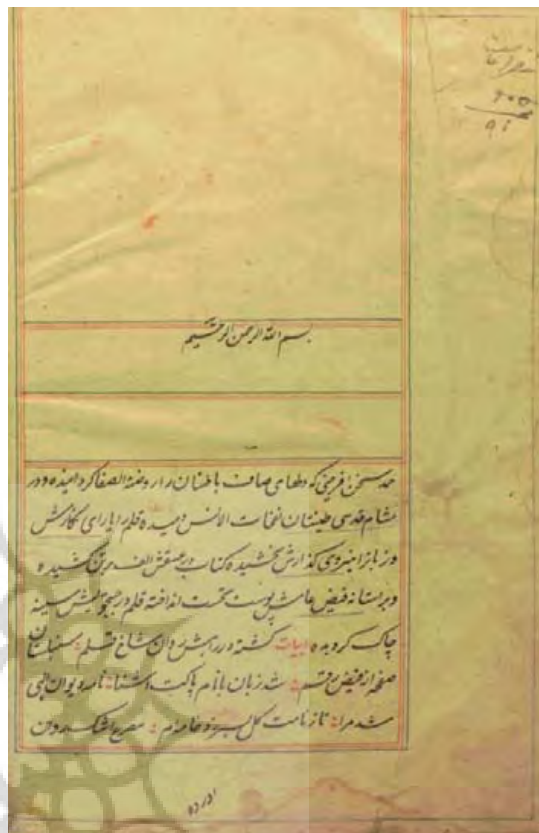 بسم الله الرحمن الرحیم
حمد سخن آفرینی که دلهای صاف باطنان را روضة الصفا گردانیده و در
مشام قدسی طینتان نفحات الانس دمیده قلم را یارای نگارش
و زبانرا نیروی گذارش بخشیده کتاب در عشقش الف بر تن کشیده
و بر استانه فیض عامش پوست تخت انداخته قلم در جستجویش سینه
چاک گردیده ابیات گشته در راهش روان شاخ قلم سنبلستان
صفحه از فیض رقم شد زبان با نام پاکت اشنا نامه دیوان الهی
شد مرا تا ز نامت گل بسر زد خامه ام مصرع
ادرده
۲۰۰